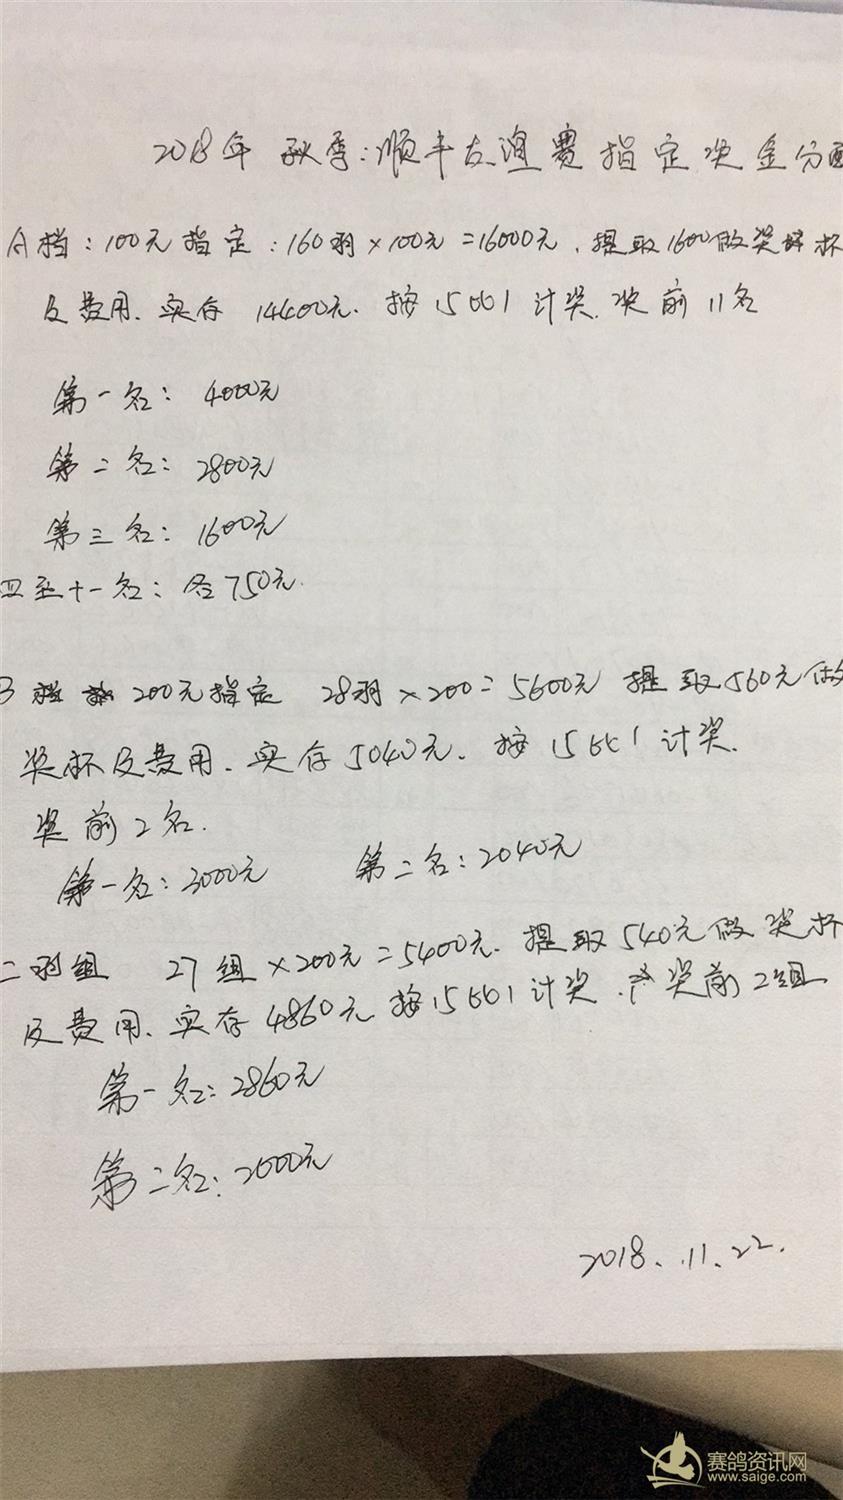 2018年 秋季:顺丰友谊赛指定奖金分配
A档:100元指定:160羽×100元=16000元.提取1600做奖杯
及费用.实存 14400元.按15001计奖.奖前11名
第一名: 4000元
第二名: 2800元
第三名: 1600元
四至十一名:各750元.
B档 200元指定 28羽×200=5600元 提取560元做
奖杯及费用.实存5040元.按15001计奖.
奖前2名.
第一名:3000元 第二名:2040元
二羽组 27组×200元=5400元.提取540元做奖杯
及费用.实存4860元.按15001计奖.奖前2组
第一名:2860元
第二名:2000元
2018.11.22.
赛鸽资讯网
www.saige.com